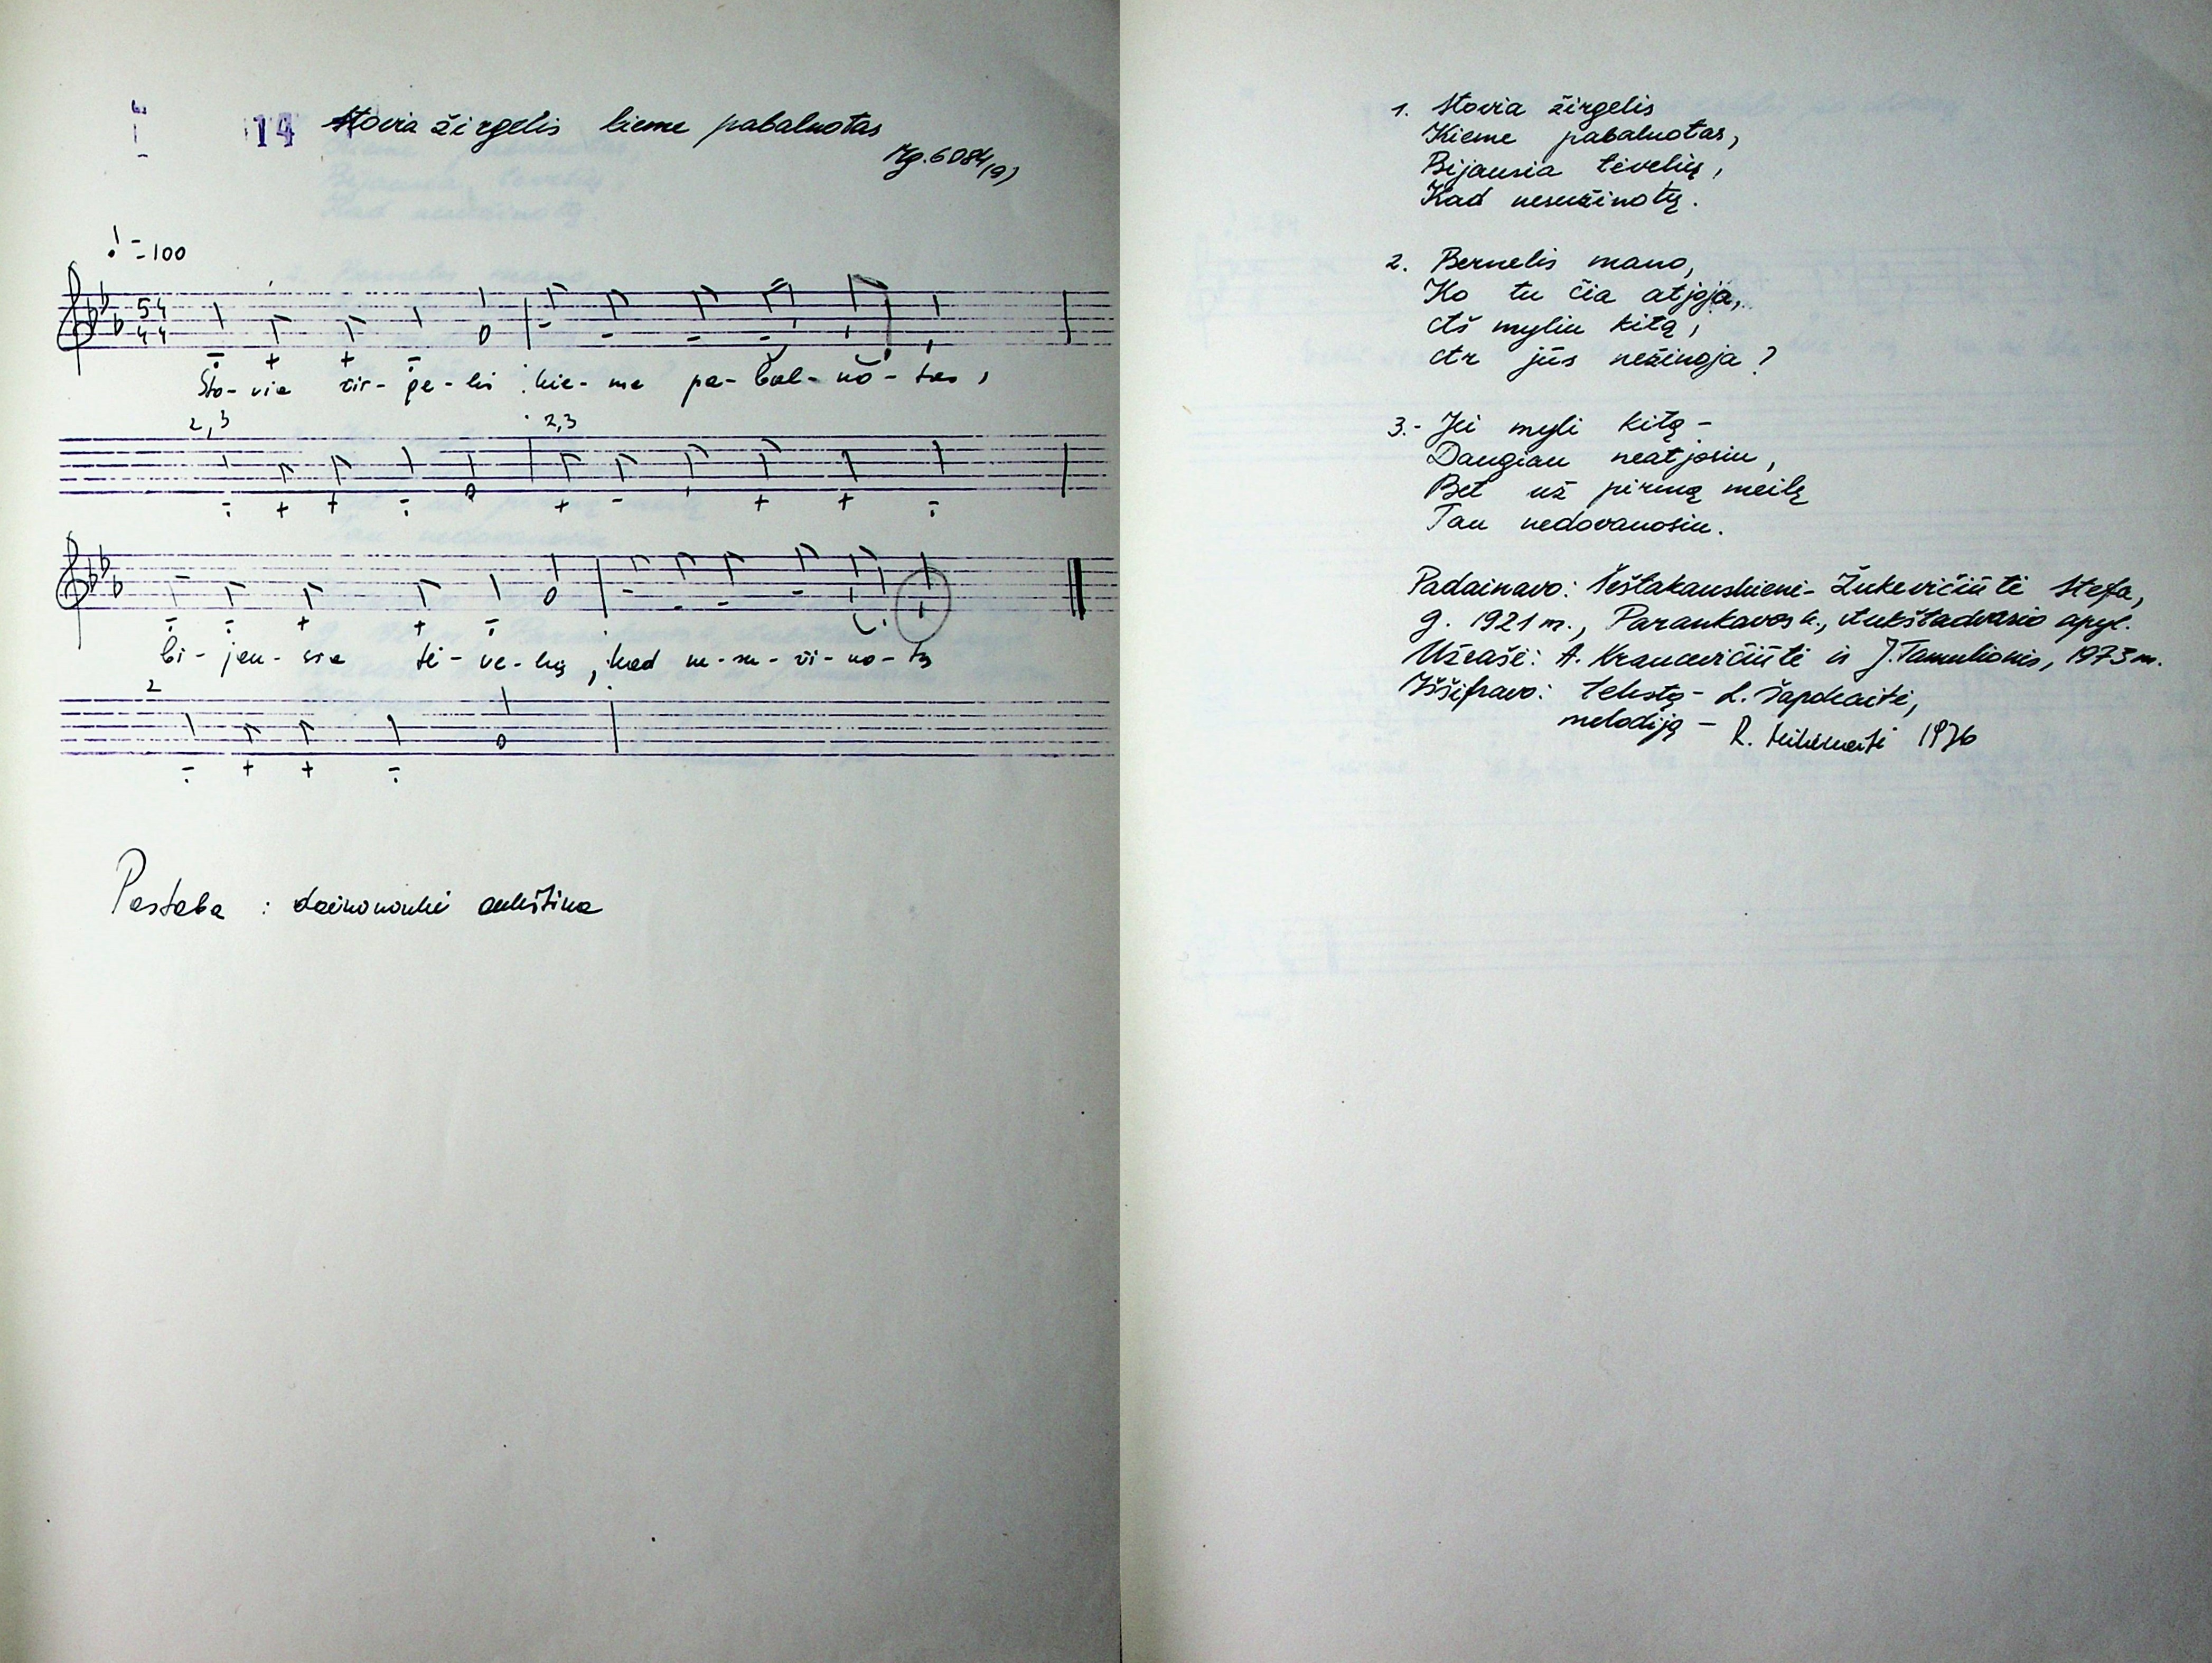 14 Stovia žirgelis kieme pabalnotas
Mg. 6084(9)
♩ = 100
5 4
4 4
Sto- via žir- ge- lis kie- me pa- bal- no- tas,
2,3 2,3
bi- jau- sia tė- ve- lių, kad ne- su- ži- no- tų
2
Pastaba : dainononkė aukština
1. Stovia žirgelis
Kieme pabalnotas,
Bijausia tėvelių,
Kad nesužinotų.
2. Bernelis mano,
Ko tu čia atjoja,
Aš myliu kitą,
Ar jūs nežinoja?
3.- Jei myli kitą –
Daugiau neatjosiu,
Bet už pirmą meilę
Tau nedovanosiu.
Padainavo: Šeštakauskienė - Žukevičiūtė Stefa,
g. 1921 m., Parankavos k., Aukštadvario apyl.
Užrašė: A. Krancevičiūtė ir J. Tamulionis, 1973 m.
Iššifravo: tekstą – L. Sapokaitė,
melodiją – R. 1976